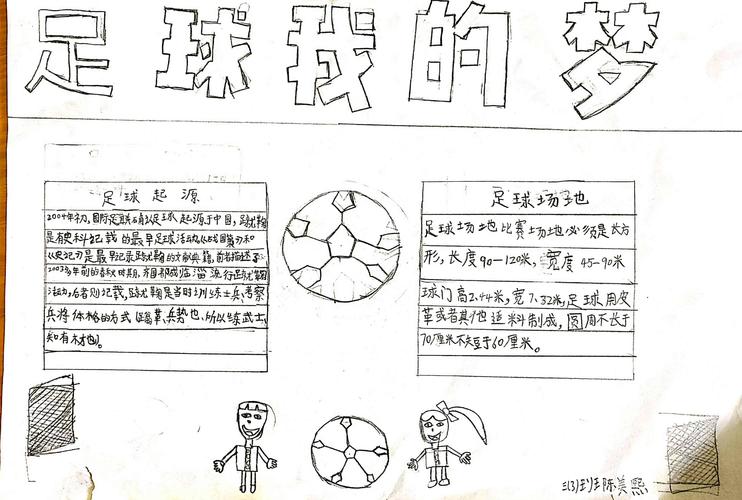 足球我的梦
足球起源
2004年初,国际足联确认足球起源于中国,蹴鞠
是有史料记载的最早足球活动,《战国策》和
《史记》是最早记录蹴鞠的文献典籍,前者描述了
2003多年前的春秋时期,齐国都城临淄流行蹴鞠
活动,后者则记载,蹴鞠是当时训练士兵、考察
兵将体格的方式《蹋鞠,兵势也,所以练武士,
知有材也》。
足球场地
足球场地比赛场地必须是长方
形,长度90-120米,宽度45-90米
球门高2.44米,宽7.32米,足球用皮
革或者其他适料制成,圆周不长于
70厘米不短于60厘米。
三(3)班陈美熙